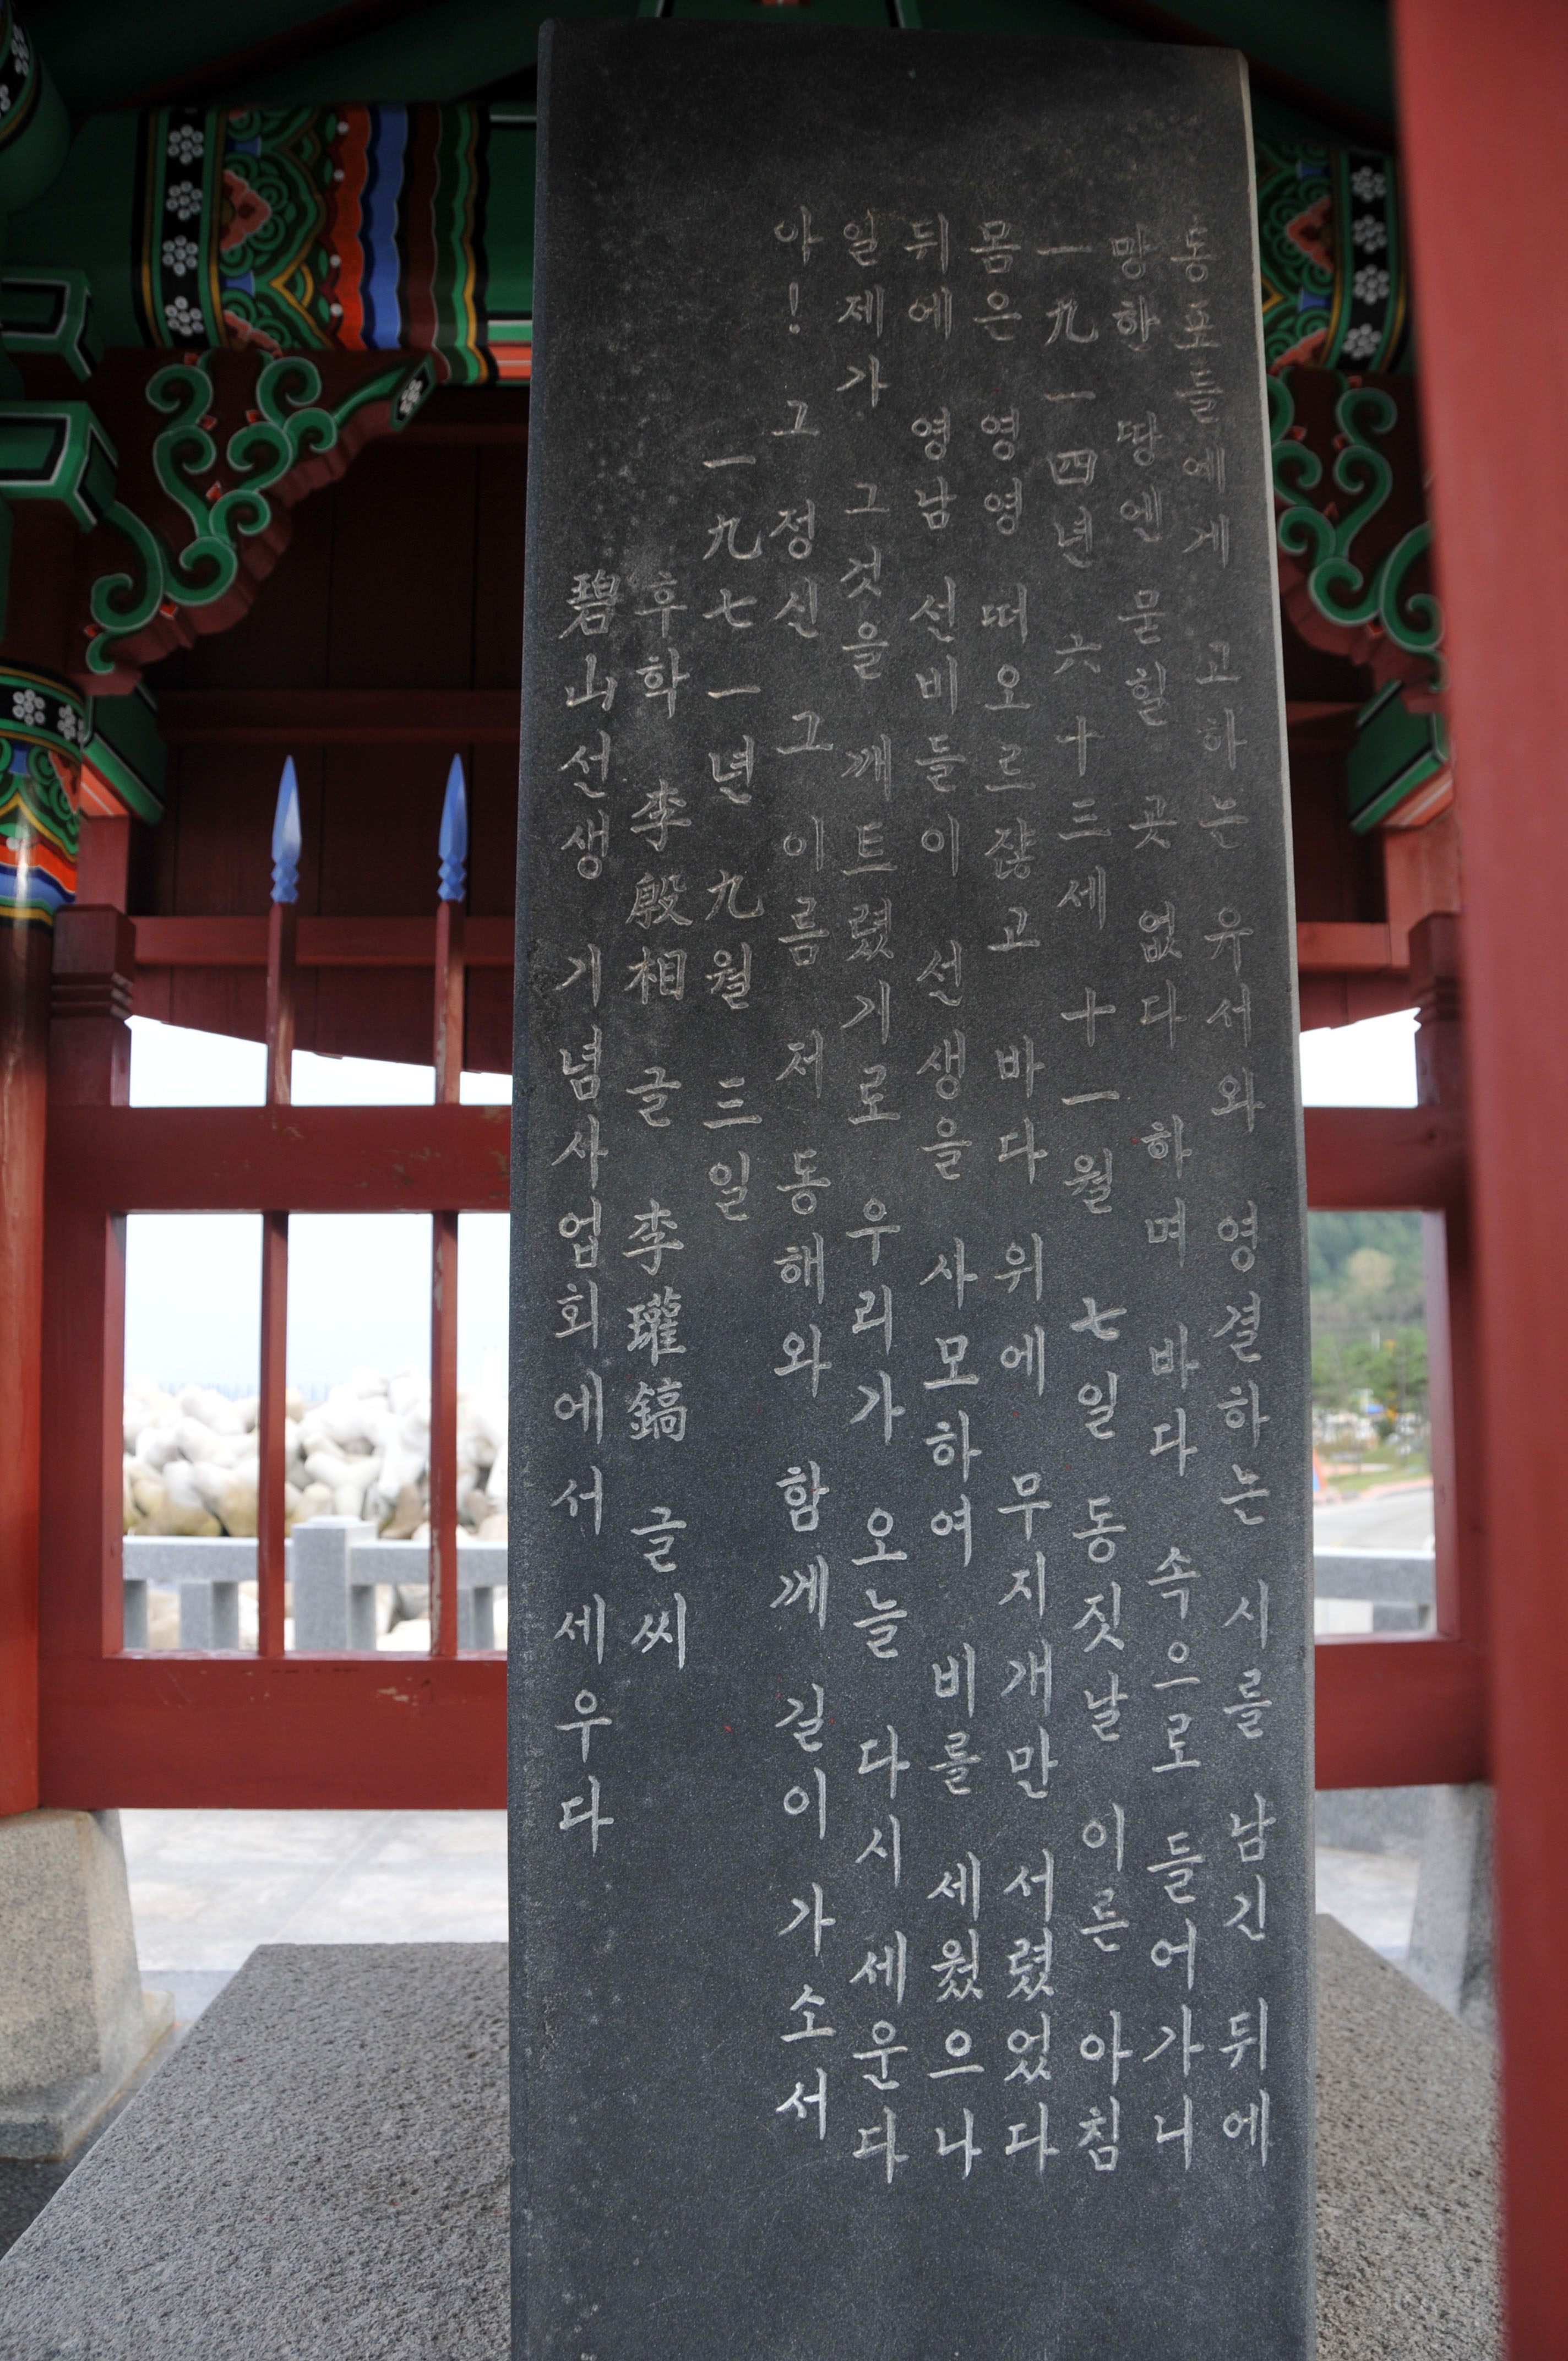 동포들에게 고하는 유서와 영결하는 시를 남긴 뒤에
망한 땅엔 묻힐 곳 없다 하며 바다 속으로 들어가니
一九一四년 六十三세 十一월 七일 동짓날 이른 아침
몸은 영영 떠오르쟎고 바다 위에 무지개만 서렸었다
뒤에 영남 선비들이 선생을 사모하여 비를 세웠으나
일제가 그것을 깨트렸기로 우리가 오늘 다시 세운다
아! 그 정신 그 이름 저 동해와 함께 길이 가소서
一九七一년 九월 三일
후학 李殷相 글 李瓘鎬 글씨
碧山선생 기념사업회에서 세우다